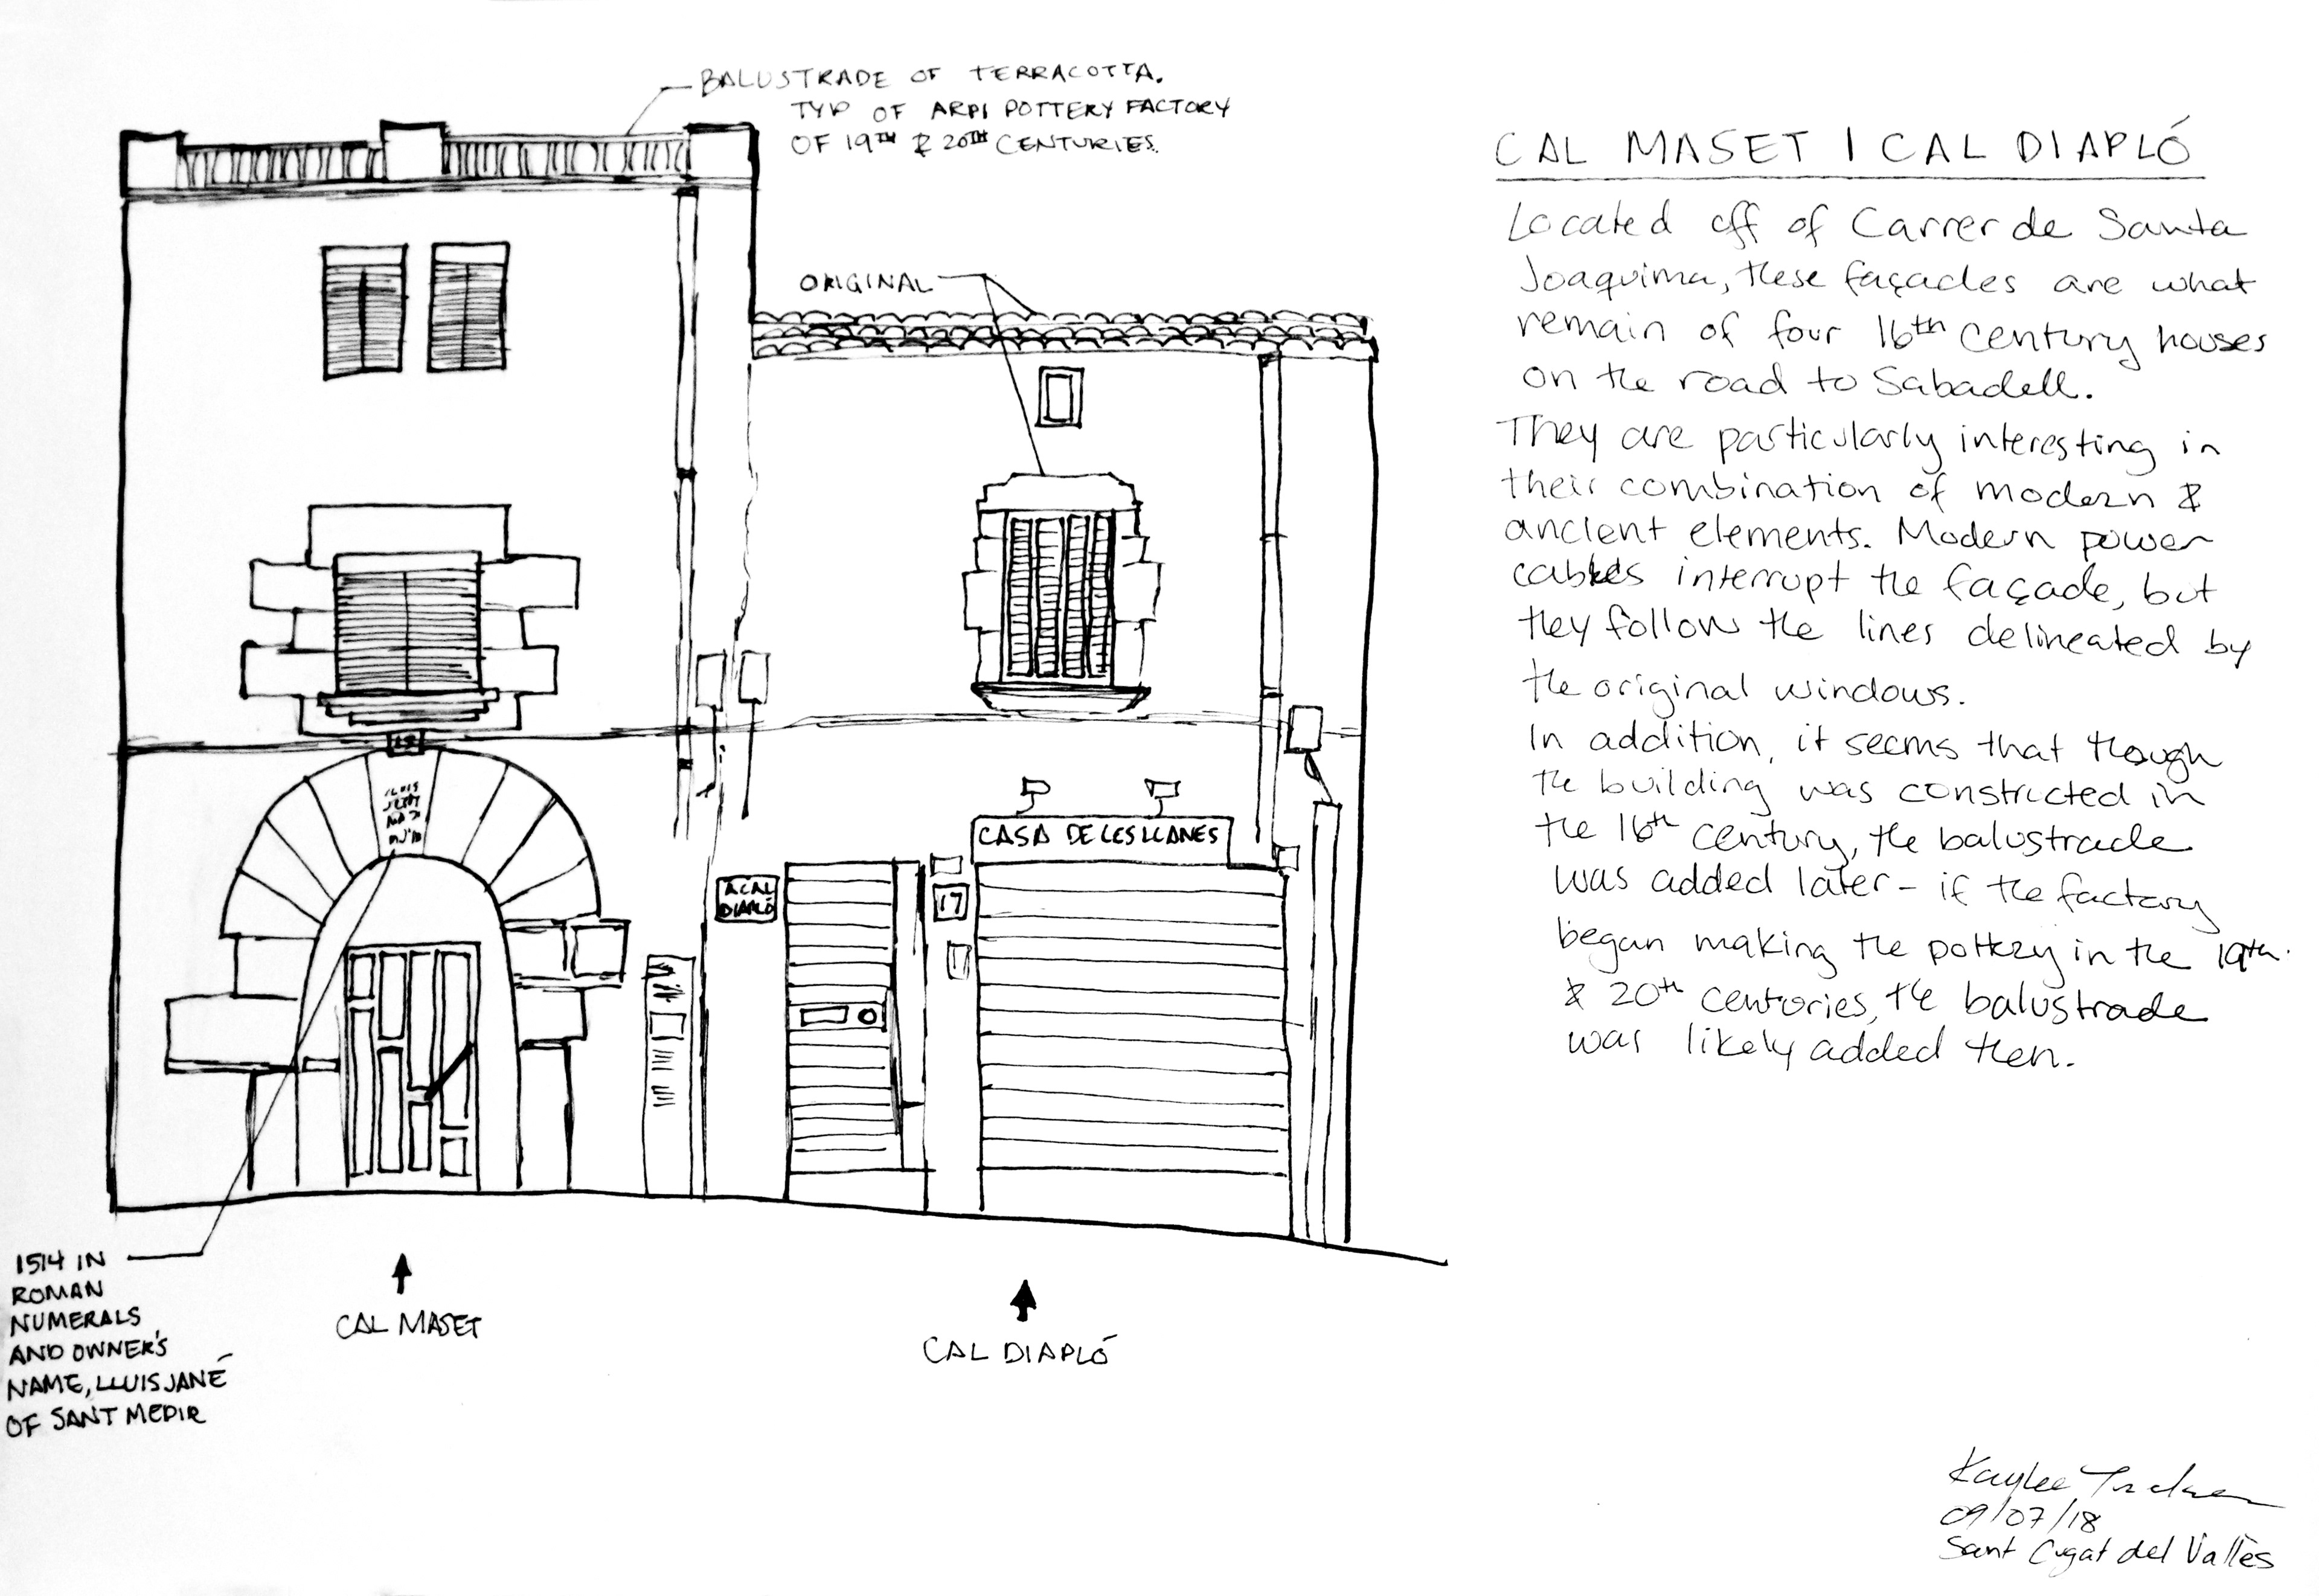 BALUSTRADE OF TERRACOTTA.
TYP OF ARPI POTTERY FACTORY
OF 19TH & 20TH CENTURIES.
ORIGINAL
CASA DE LES LLANES
A CAL
DIAPLÓ
17
1514 IN
ROMAN
NUMERALS
AND OWNER'S
NAME, LLUIS JANÉ
OF SANT MEDIR
CAL MASET
CAL DIAPLÓ
CAL MASET I CAL DIAPLÓ
Located off of Carrer de Santa
Joaquima, these façades are what
remain of four 16th century houses
on the road to Sabadell.
They are particularly interesting in
their combination of modern &
ancient elements. Modern power
cables interrupt the façade, but
they follow the lines delineated by
the original windows.
In addition, it seems that though
the building was constructed in
the 16th century, the balustrade
was added later – if the factory
began making the pottery in the 19th
& 20th centuries, the balustrade
was likely added then.
Kaylee
09/07/18
Sant Cugat del Vallès